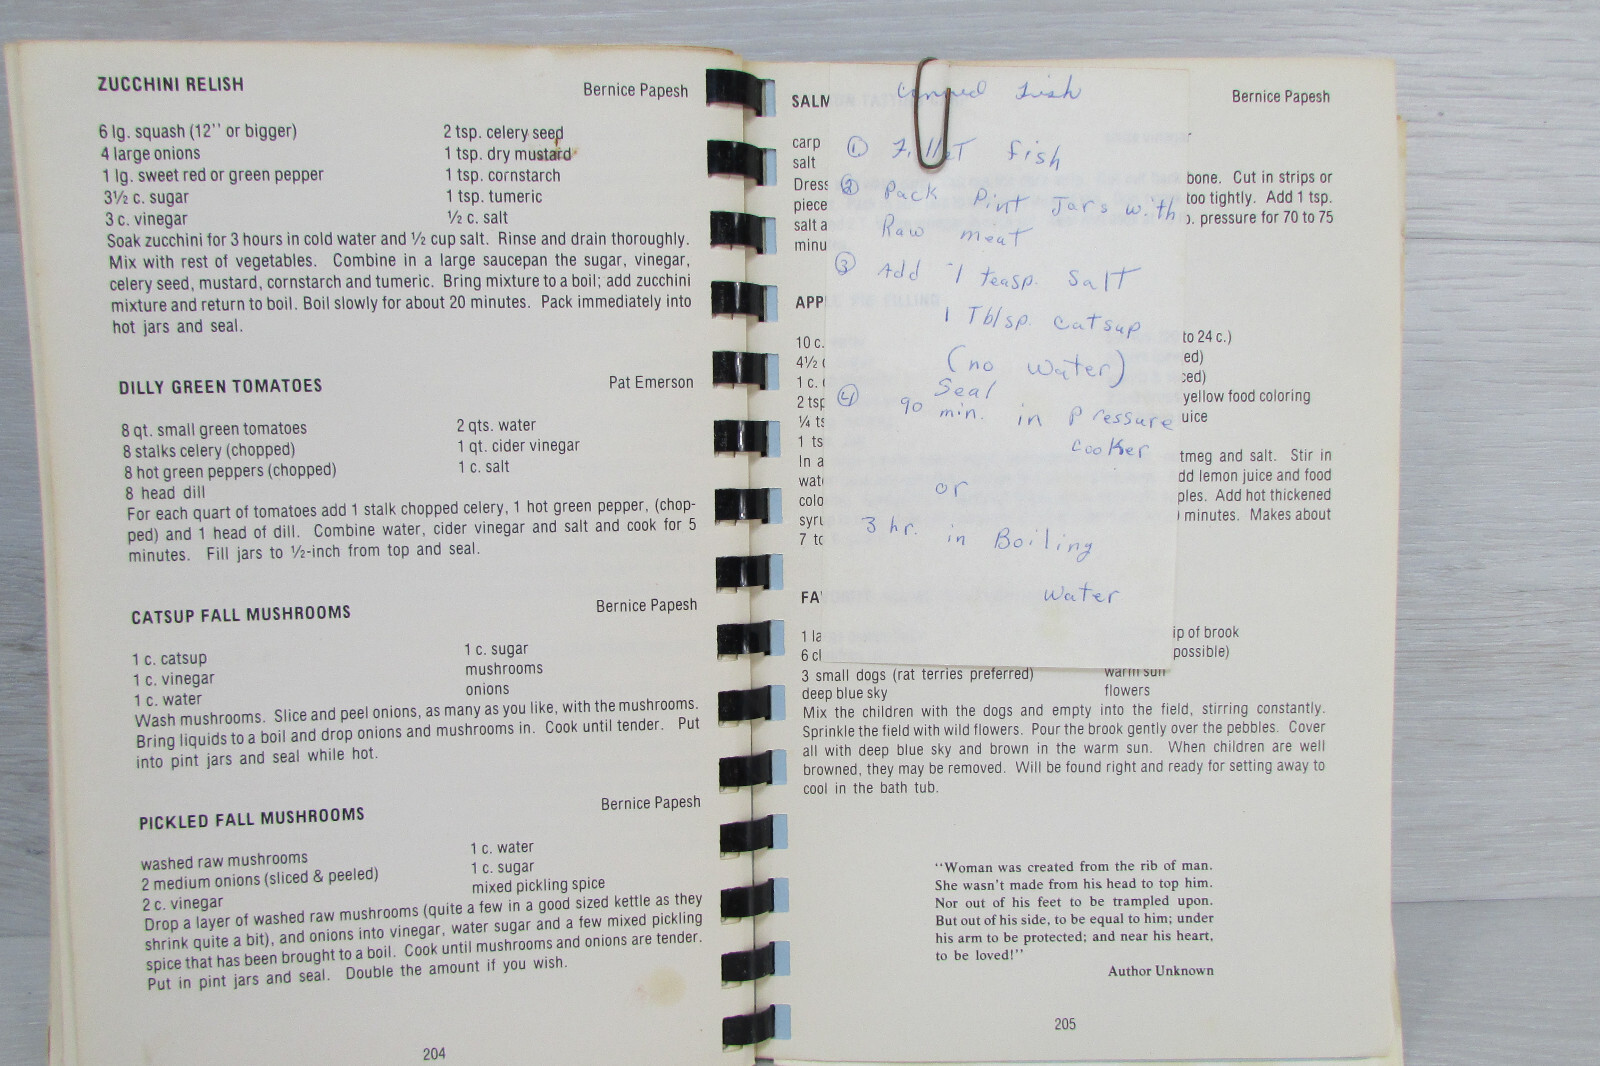 ZUCCHINI RELISH
Bernice Papesh
6 lg. squash (12'' or bigger)
4 large onions
1 lg. sweet red or green pepper
3½ c. sugar
3 c. vinegar
2 tsp. celery seed
1 tsp. dry mustard
1 tsp. cornstarch
1 tsp. tumeric
½ c. salt
Soak zucchini for 3 hours in cold water and ½ cup salt. Rinse and drain thoroughly.
Mix with rest of vegetables. Combine in a large saucepan the sugar, vinegar,
celery seed, mustard, cornstarch and tumeric. Bring mixture to a boil; add zucchini
mixture and return to boil. Boil slowly for about 20 minutes. Pack immediately into
hot jars and seal.
DILLY GREEN TOMATOES
Pat Emerson
8 qt. small green tomatoes
8 stalks celery (chopped)
8 hot green peppers (chopped)
8 head dill
2 qts. water
1 qt. cider vinegar
1 c. salt
For each quart of tomatoes add 1 stalk chopped celery, 1 hot green pepper, (chop-
ped) and 1 head of dill. Combine water, cider vinegar and salt and cook for 5
minutes. Fill jars to ½-inch from top and seal.
CATSUP FALL MUSHROOMS
Bernice Papesh
1 c. catsup
1 c. vinegar
1 c. water
1 c. sugar
mushrooms
onions
Wash mushrooms. Slice and peel onions, as many as you like, with the mushrooms.
Bring liquids to a boil and drop onions and mushrooms in. Cook until tender. Put
into pint jars and seal while hot.
PICKLED FALL MUSHROOMS
Bernice Papesh
washed raw mushrooms
2 medium onions (sliced & peeled)
2 c. vinegar
1 c. water
1 c. sugar
mixed pickling spice
Drop a layer of washed raw mushrooms (quite a few in a good sized kettle as they
shrink quite a bit), and onions into vinegar, water sugar and a few mixed pickling
spice that has been brought to a boil. Cook until mushrooms and onions are tender.
Put in pint jars and seal. Double the amount if you wish.
204
canned fish
① Fillet fish
② Pack Pint Jars with
Raw meat
③ Add 1 teasp. salt
1 Tblsp. catsup
(no water)
④ Seal
90 min. in Pressure
cooker
or
3 hr. in Boiling
water
SALM
Bernice Papesh
carp
salt
Dress
bone. Cut in strips or
piece
too tightly. Add 1 tsp.
salt a
. pressure for 70 to 75
minu
APP
10 c.
4½
1 c.
2 tsp
¼ ts
1 ts
to 24 c.)
ed)
ced)
yellow food coloring
uice
In a
tmeg and salt. Stir in
wat
dd lemon juice and food
colo
ples. Add hot thickened
syru
minutes. Makes about
7 to
FA
1 la
6 cl
3 small dogs (rat terries preferred)
deep blue sky
ip of brook
possible)
warm sun
flowers
Mix the children with the dogs and empty into the field, stirring constantly.
Sprinkle the field with wild flowers. Pour the brook gently over the pebbles. Cover
all with deep blue sky and brown in the warm sun. When children are well
browned, they may be removed. Will be found right and ready for setting away to
cool in the bath tub.
''Woman was created from the rib of man.
She wasn't made from his head to top him.
Nor out of his feet to be trampled upon.
But out of his side, to be equal to him; under
his arm to be protected; and near his heart,
to be loved!''
Author Unknown
205